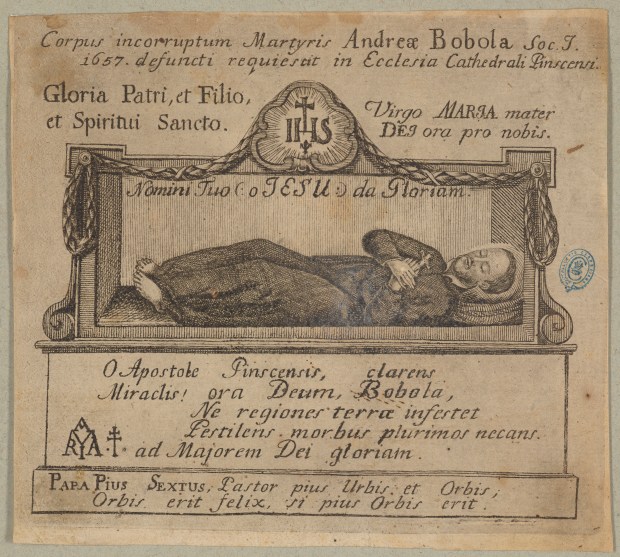 Corpus incorruptum Martyris Andreæ Bobola Soc. J.
1657. defuncti requiescit in Ecclesia Cathedrali Pinscensi.
Gloria Patri, et Filio,
et Spiritui Sancto.
Virgo MARJA mater
DEJ ora pro nobis.
IHS
Nomini Tuo (o JESU:) da Gloriam.
O Apostole Pinscensis, clarens
Miraclis! ora Deum, Bobola,
Ne regiones terræ infestet
Pestilens morbus plurimos necans.
MARYA ad Majorem Dei gloriam.
PAPA PIUS SEXTUS, Pastor pius Urbis et Orbis;
Orbis erit felix, si pius Orbis erit.